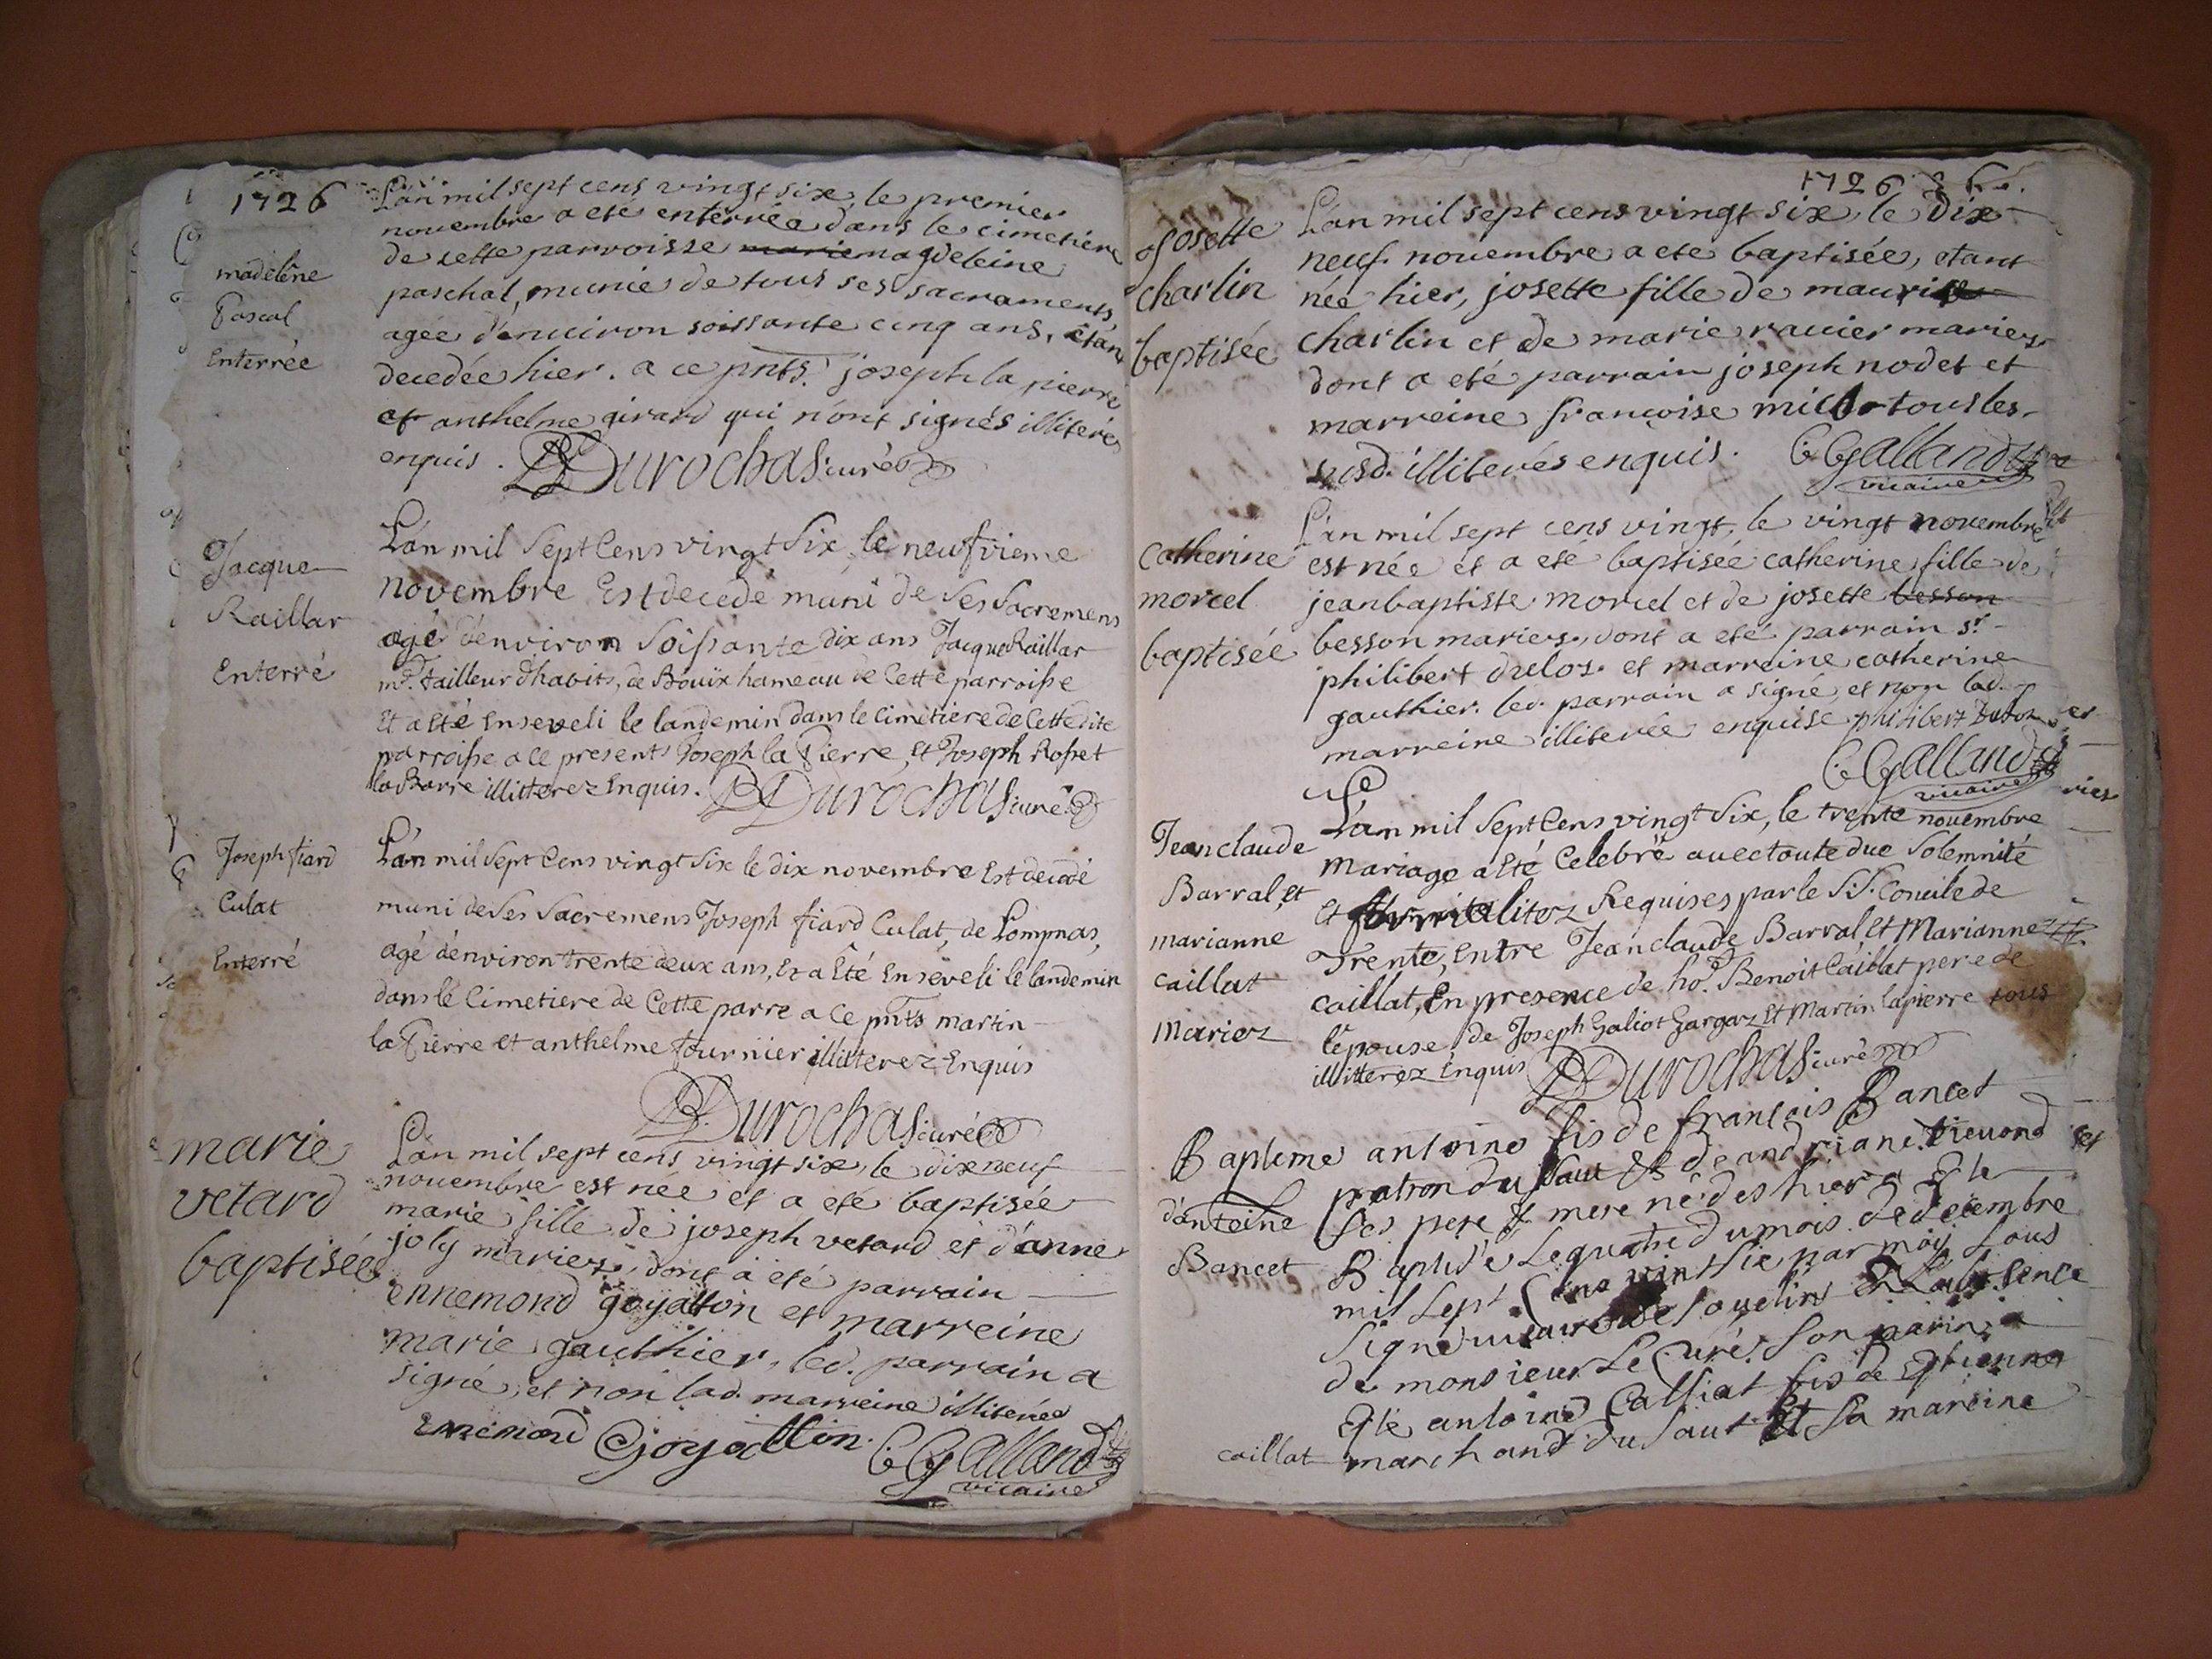 1726
madelêne
Pascal
Enterrée
L'an mil sept cens vingt six, le premier
novembre a eté enterrée dans le cimetiere
de cette parroisse marie magdeleine
paschal, munie de tous ses sacraments
agée d'enuiron soissante cinq ans, étan
decedée hier. a ce pnts. joseph la pierre
et anthelme girard qui n'ont signés illiterés
enquis. Durochas curé
Jacque
Raillar
Enterré
L'an mil Sept Cens vingt Six le neufvieme
novembre Est decedé muni de Ses Sacremens
agé d'environ Soissante dix ans Jacque Raillar
md. tailleur d'habits, de Bouix hameau de Cette parroisse
Et a Eté Enseveli le landemin dans le Cimetiere de Cette dite
parroisse a Ce presents Joseph la Pierre, Et Joseph Rosset
la Barre illitterez Enquis. Durochas curé
Joseph fiard
Culat
Enterré
L'an mil Sept Cens vingt Six le dix novembre Est decedé
muni de Ses Sacremens Joseph fiard Culat, de Lompnas,
agé d'environ trente deux ans, Et a Eté Enseveli le landemin
dans le Cimetiere de Cette parre a Ce pnts martin
la Pierre et anthelme fournier illitterez Enquis
Durochas curé
marie
vetard
baptisée
L'an mil sept cens vingt six, le dixneuf
nouembre est née et a eté baptisée
marie fille de joseph vetard et d'anne
joly mariez, dont a eté parrain
ennemond goyatton et marreine
marie gauthier, led. parrain a
signé, et non lad. marreine illiterée
Ennemond Goyatton. C Galland
vicaire
1726
Josette
charlin
baptisée
L'an mil sept cens vingt six, le dix
neuf novembre a eté baptisée, etant
née hier, josette fille de maurise
charlin et de marie rauier mariez
dont a eté parrain joseph nodet et
marreine francoise tous les
susd. illiterés enquis. C Galland
vicaire
catherine
morcel
baptisée
L'an mil sept cens vingt, le vingt novembre
est née et a eté baptisée catherine fille de
jean baptiste morcel et de josette besson
besson mariez, dont a eté parrain sr.
philibert dulos. et marreine catherine
gauthier. led. parrain a signé, et non lad.
marreine illiterée enquise philibert
C Galland
vicaire
Jean claude
Barral, et
marianne
caillat
Mariez
L'an mil Sept Cens vingt Six, le trente novembre
Mariage a Eté Celebré auec toute due Solemnité
Et formalitez Requises par le S.S. Concile de
Trente, Entre Jean claude Barral Et Marianne
caillat, En presence de ho. Benoit Caillat pere de
l'epouse, de Joseph Galiot Gargaz Et Martin lapierre tous
illitterez Enquis Durochas curé
Bapteme
d'antoine
Bancet
antoine fis de francois Bancet
patron du saut Et de andriane
Ses pere Et mere né des hier a Este
Baptisé Le quatre du mois de decembre
mil Sept Cens vint Six par moy Sous
Signé vicaire de Souclin En L'absence
de monsieur Le Curé Son parin a
Este antoine Calliat fis de Estienne
caillat marchand du Saut Et Sa mareine